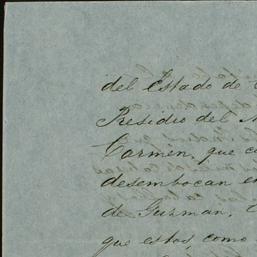 del Estado de
Presidio del
Carmen, que
desembocan en
de Guzman,
que estos, como